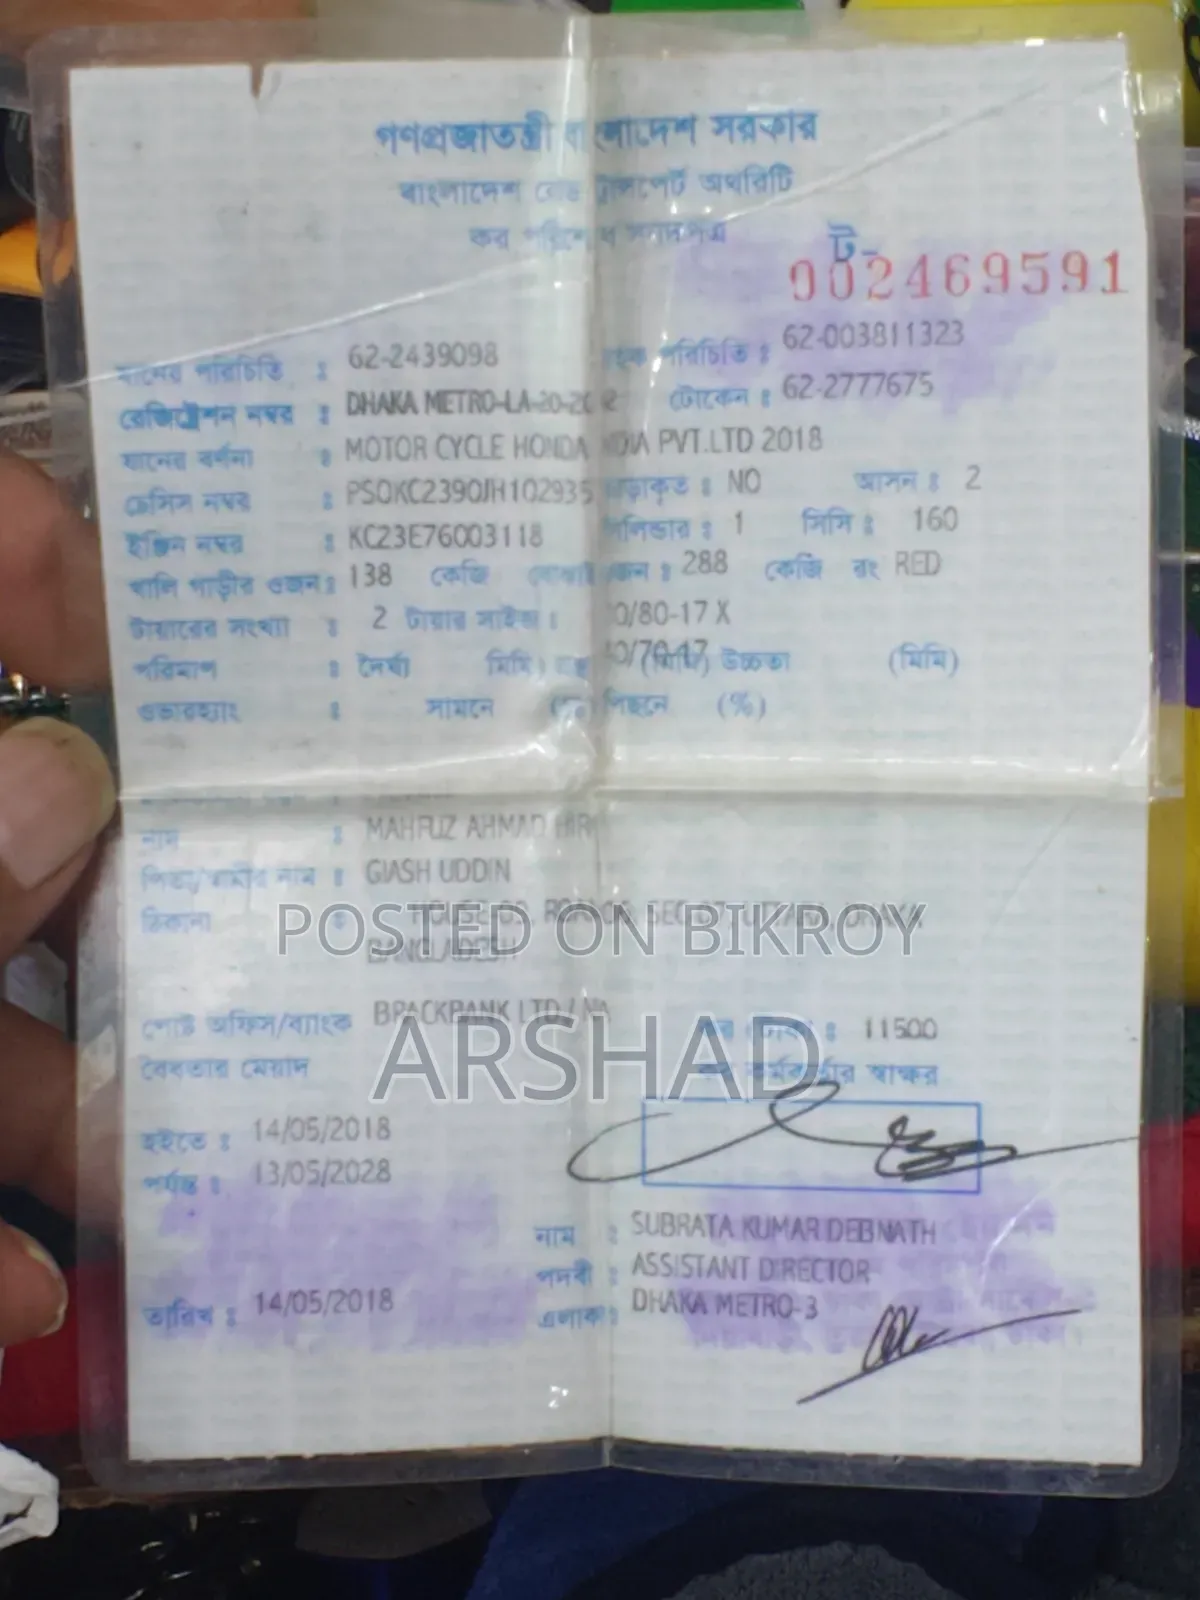 গণপ্রজাতন্ত্রী বাংলাদেশ সরকার
বাংলাদেশ রোড ট্রান্সপোর্ট অথরিটি
কর পরিশোধ সনদপত্র
ট-
002469591
যানের পরিচিতি : 62-2439098 পরিচিতি : 62-003811323
রেজিষ্ট্রেশন নম্বর : DHAKA METRO-LA-20- টোকেন : 62-2777675
যানের বর্ণনা : MOTOR CYCLE HONDA INDIA PVT.LTD 2018
চেসিস নম্বর : PSOKC2390JH102935 ভাড়াকৃত : NO আসন : 2
ইঞ্জিন নম্বর : KC23E76003118 সিলিন্ডার : 1 সিসি : 160
খালি গাড়ীর ওজন : 138 কেজি বোঝাই ওজন : 288 কেজি রং RED
টায়ারের সংখ্যা : 2 টায়ার সাইজ : 0/80-17 X
0/70-17
পরিমাপ : দৈর্ঘ্য মিমি) (মিমি) উচ্চতা (মিমি)
ওভারহ্যাং : সামনে (%) পিছনে (%)
নাম : MAHFUZ AHMAD
পিতা/স্বামীর নাম : GIASH UDDIN
ঠিকানা : HOUSE- UTTARA, DHAKA
BANGLADESH
POSTED ON BIKROY
পোষ্ট অফিস/ব্যাংক BRACKBANK LTD / NA
: 11500
ARSHAD
বৈধতার মেয়াদ কর কর্মকর্তার স্বাক্ষর
হইতে : 14/05/2018
পর্যন্ত : 13/05/2028
নাম : SUBRATA KUMAR DEBNATH
পদবী : ASSISTANT DIRECTOR
তারিখ : 14/05/2018 এলাকা : DHAKA METRO-3